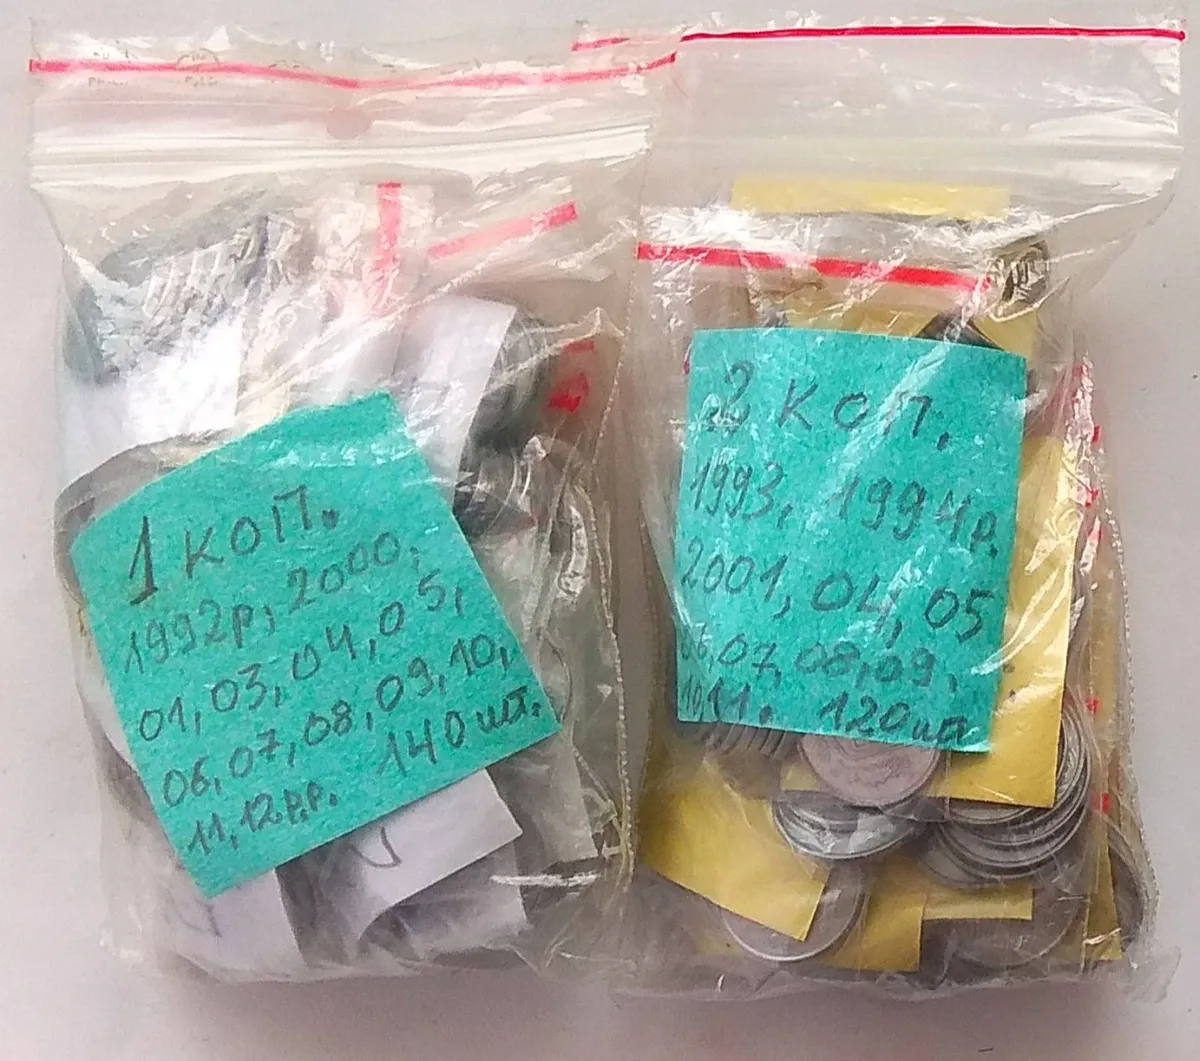 1 коп.
1992р, 2000,
01, 03, 04, 05,
06, 07, 08, 09, 10,
11, 12р.р. 140 шт.
2 коп.
1993, 1994р.
2001, 04, 05
06, 07, 08, 09,
10, 11. 120 шт